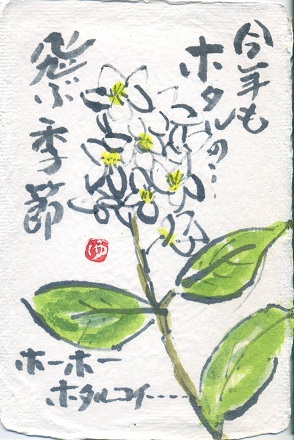 今年も
ホタルの…
飛ぶ季節
ゆ
ホーホー
ホタルコイ……